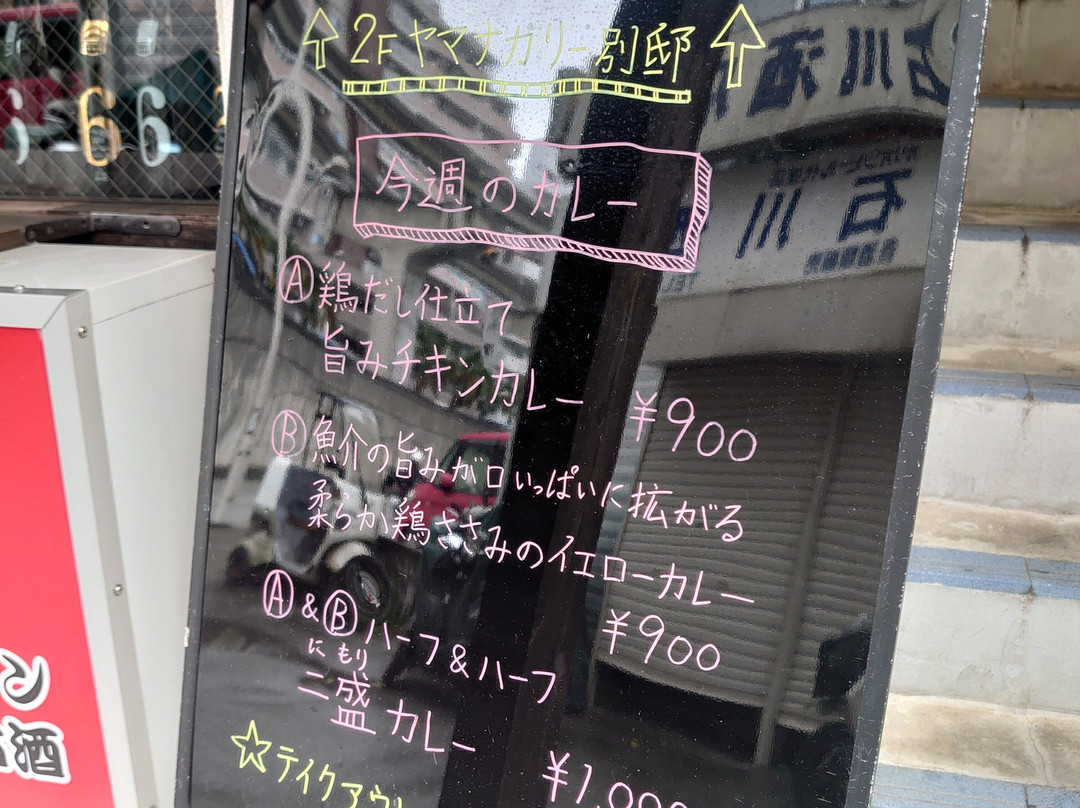 ↑2F ヤマナカリー別邸↑
今週のカレー
Ⓐ鶏だし仕立て
旨みチキンカレー
¥900
Ⓑ魚介の旨みが口いっぱいに拡がる
柔らか鶏ささみのイエローカレー
¥900
Ⓐ&Ⓑハーフ&ハーフ
にもり
二盛カレー
¥1,000
☆テイクアウ
石川酒
石川
66
酒